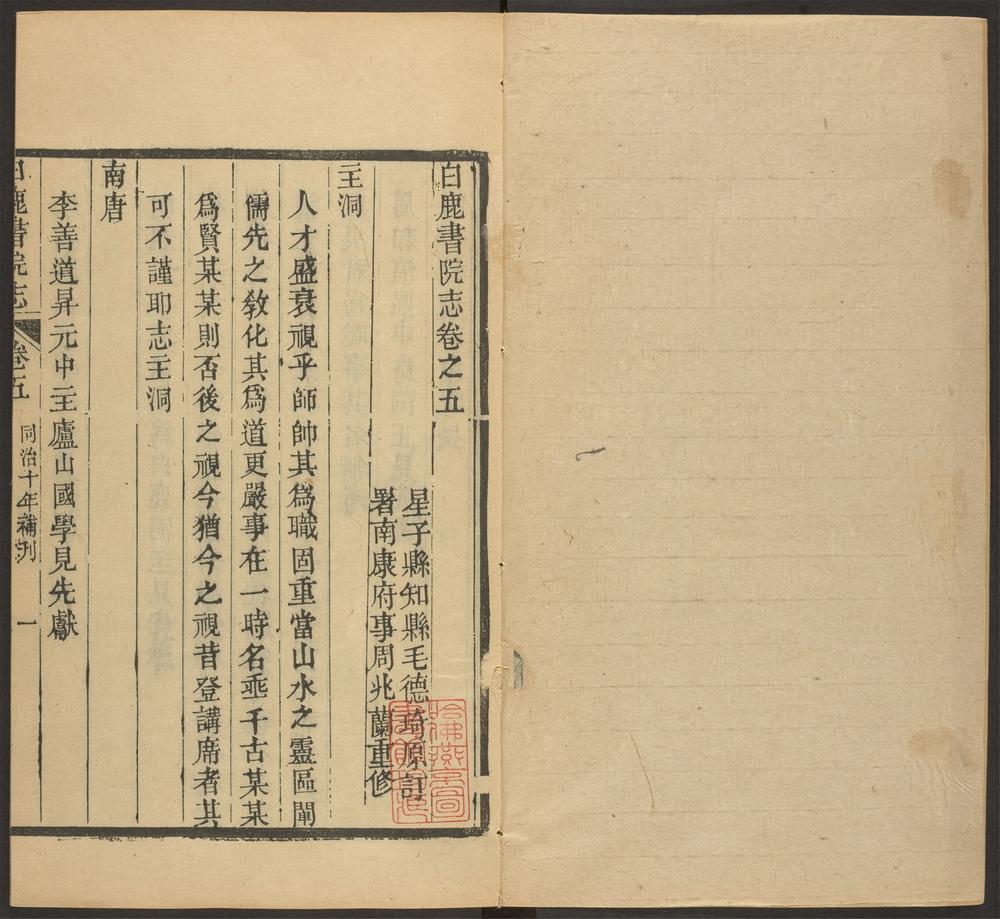 白鹿書院志卷之五
星子縣知縣毛德琦原訂
署南康府事周兆蘭重修
主洞
人才盛衰視乎師帥其爲職固重當山水之靈區闡
儒先之敎化其爲道更嚴事在一時名垂千古某某
爲賢某某則否後之視今猶今之視昔登講席者其
可不謹耶志主洞
南唐
李善道昇元中主廬山國學見先獻
白鹿書院志
卷五
同治十年補刋
一
哈佛燕京圖